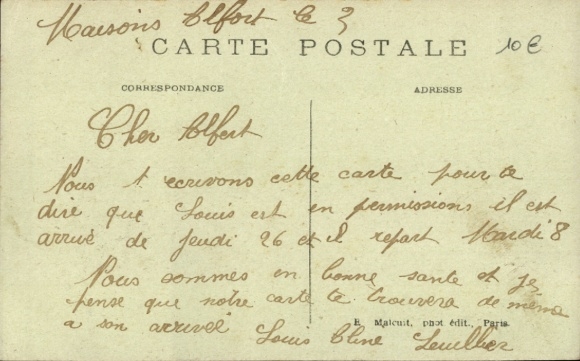 Maisons Alfort le 3
CARTE POSTALE
10€
CORRESPONDANCE
ADRESSE
Cher Alfert
Nous t ecrivons cette carte pour te
dire que Louis est en permissions il est
arrivé de Jeudi 26 et il repart Mardi 8
Nous sommes en bonne sante et je
pense que notre carte te trouvera de meme
a son arrivée Louis
E. Malcuit, phot édit., Paris.